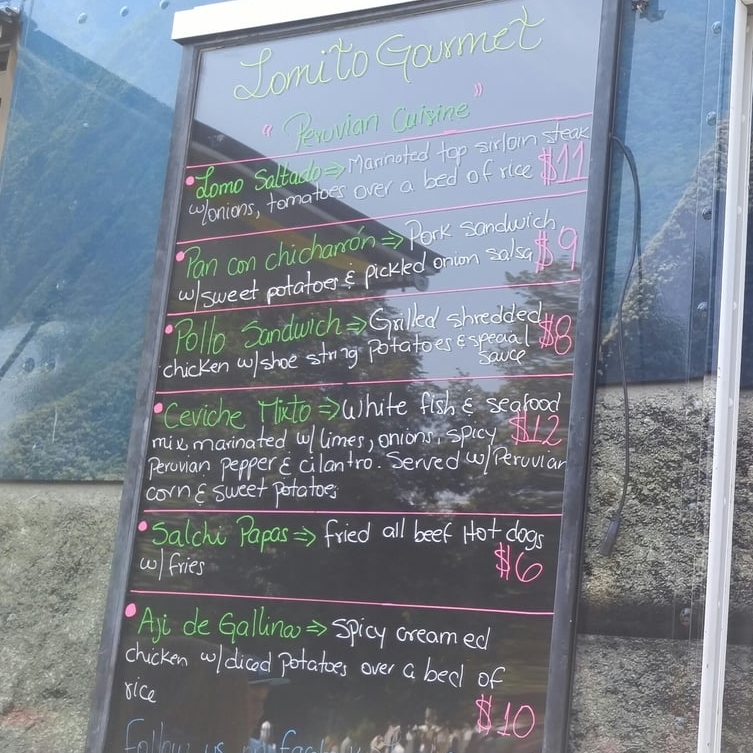 Lomito Gourmet
" Peruvian Cuisine "
• Lomo Saltado ⇒ Marinated top sirloin steak
w/onions, tomatoes over a bed of rice $11
• Pan con chicharrón ⇒ Pork Sandwich
w/sweet potatoes & pickled onion salsa $9
• Pollo Sandwich ⇒ Grilled shredded
chicken w/shoe string potatoes & special $8
sauce
• Ceviche Mixto ⇒ White fish & seafood
mix marinated w/limes, onions, spicy $12
Peruvian pepper & cilantro. Served w/Peruvian
corn & sweet potatoes
• Salchi Papas ⇒ fried all beef Hot dogs
w/fries $6
• Aji de Gallina ⇒ Spicy creamed
chicken w/diced potatoes over a bed of
rice
$10
Follow us